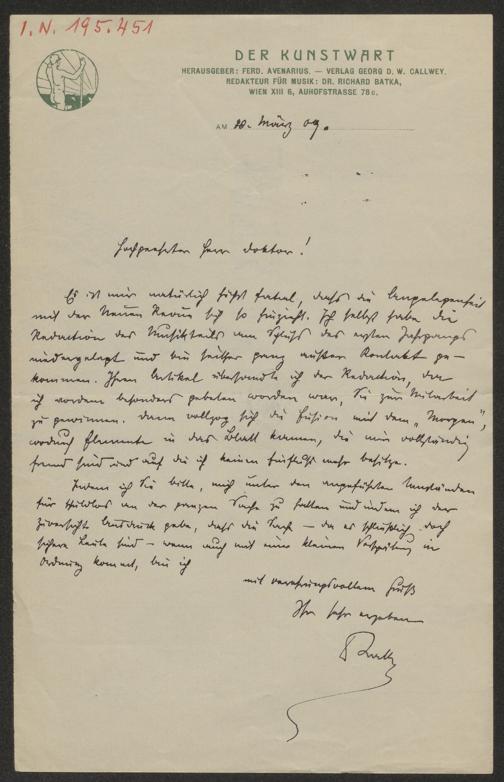 I.N. 195.451
DER KUNSTWART
HERAUSGEBER: FERD. AVENARIUS. — VERLAG GEORG D. W. CALLWEY.
REDAKTEUR FÜR MUSIK: DR. RICHARD BATKA,
WIEN XIII 6, AUHOFSTRASSE 78c.
AM 28. März 09.
Hochgeehrter Herr Doktor!
Es ist mir natürlich höchst fatal, dass die Angelegenheit
mit der Neuen Revue sich so hinzieht. Ich selbst habe die
Redaction des Musikteils am Schluss des ersten Jahrgangs
niedergelegt und bin seither ganz ausser Kontakt ge-
kommen. Ihren Artikel übersandte ich der Redaction, da
ich vordem besonders gebeten worden war, Sie zur Mitarbeit
zu gewinnen. Dann vollzog sich die Fusion mit dem „Morgen",
wodurch Elemente in das Blatt kamen, die mir vollständig
fremd sind und auf die ich keinen Einfluss mehr besitze.
Indem ich Sie bitte, mich unter den angeführten Umständen
für schuldlos an der ganzen Sache zu halten und indem ich der
Zuversicht Ausdruck gebe, dass die Sache — da es schliesslich doch
sichere Leute sind — wenn auch mit einer kleinen Verspätung in
Ordnung kommt, bin ich
mit verehrungsvollem Gruss
Ihr sehr ergebener
RBatka